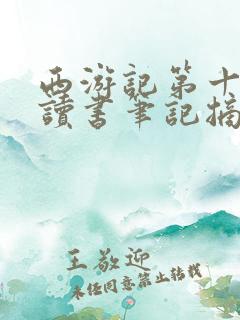 西游記第十
讀書筆記摘
王敬迎
未经同意禁止转载